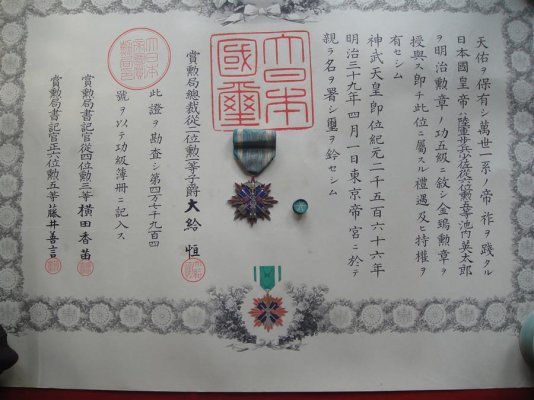 天佑ヲ保有シ萬世一系ノ帝祚ヲ踐タル
日本國皇帝ハ陸軍歩兵少佐從六位勲五等池内英太郎
ヲ明治勲章ノ功五級ニ敍シ金鵄勲章ヲ
授與ス即チ此位ニ屬スル禮遇及ヒ特權ヲ
有セシム
神武天皇即位紀元二千五百六十六年
明治三十九年四月一日東京帝宮ニ於テ
親ラ名ヲ署シ璽ヲ鈐セシム
大日本
國璽
賞勲局總裁從二位勲一等子爵大給恒
此證ヲ勘査シ第四万千九百四
號ヲ以テ功級簿册ニ記入ス
賞勲局書記官從四位勲三等横田香苗
賞勲局書記官正六位勲五等藤井善言